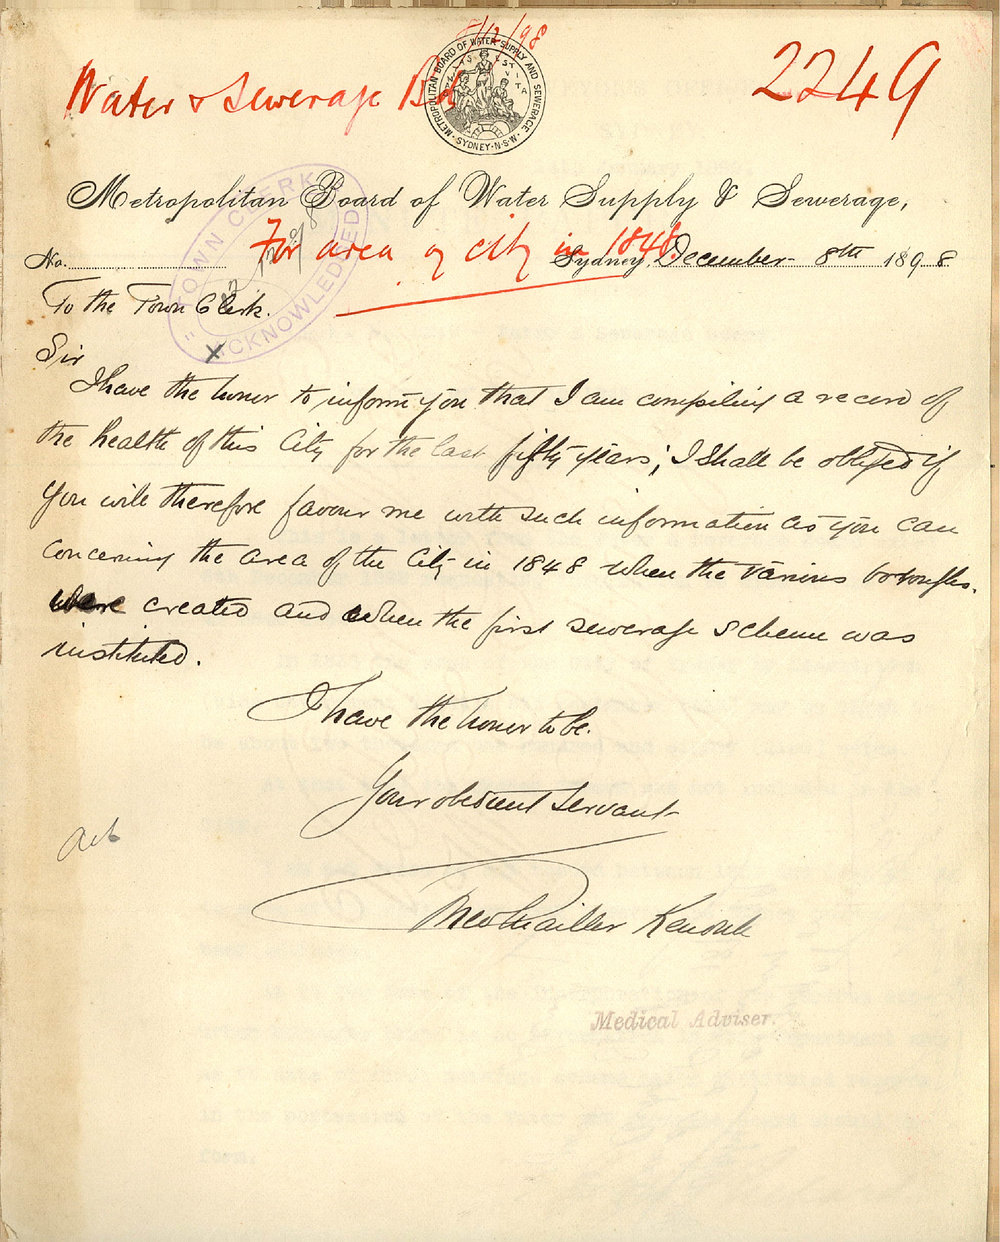 5/12/98
Water & Sewerage Bd
2249
METROPOLITAN BOARD OF WATER SUPPLY AND SEWERAGE
SYDNEY·N·S·W·
Metropolitan Board of Water Supply & Sewerage,
TOWN CLERK
ACKNOWLEDGED
For area of city in 1848.
No.
Sydney, December 8th 1898
To the Town Clerk.
X
Sir
I have the honor to inform you that I am compiling a record of
the health of this City for the last fifty years; I shall be obliged if
you will therefore favour me with such information as you can
concerning the area of the City in 1848 when the various boroughs.
were created and when the first sewerage scheme was
instituted.
I have the honor to be.
Your obedient servant
Ack
Medical Adviser.